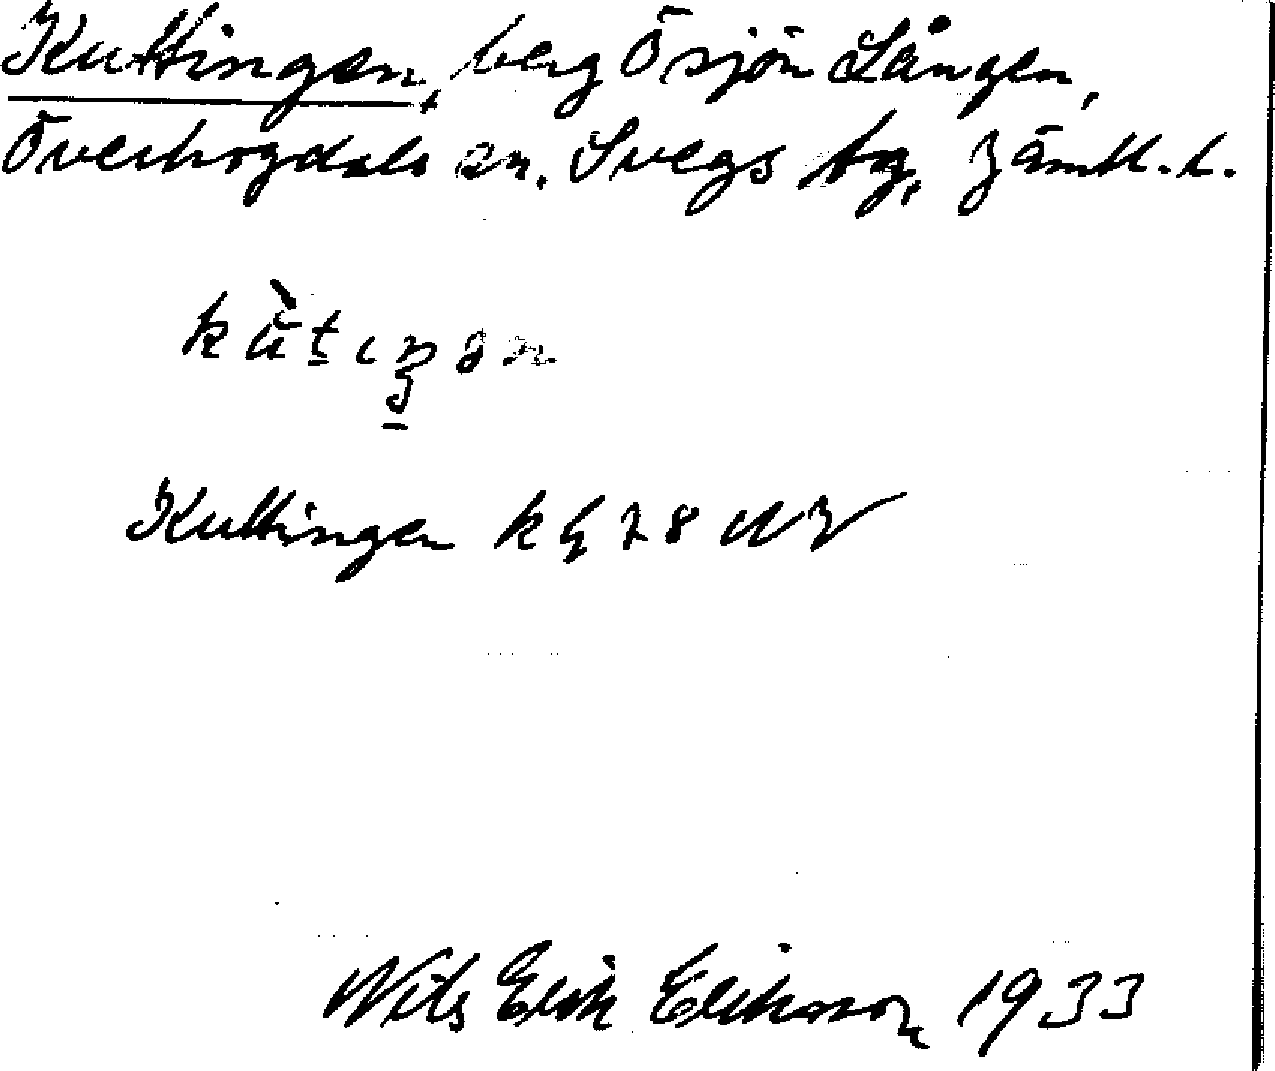 Kuttingen, berg Ö sjön Lången,
Överhogdals sn. Svegs tg, Jämtl. l.
kùtıŋən
Kuttingen kg 28 NV
Nils Erik Eriksson 1933